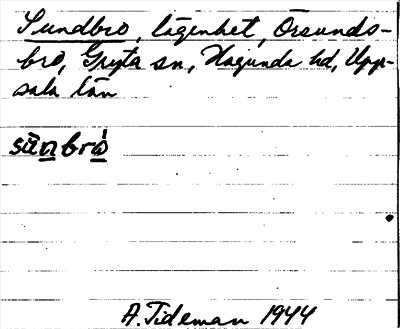 Sundbro, lägenhet, Örsunds-
bro, Gryta sn, Hagunda hd, Upp-
sala län
sũnbrò
A. Tideman 1944